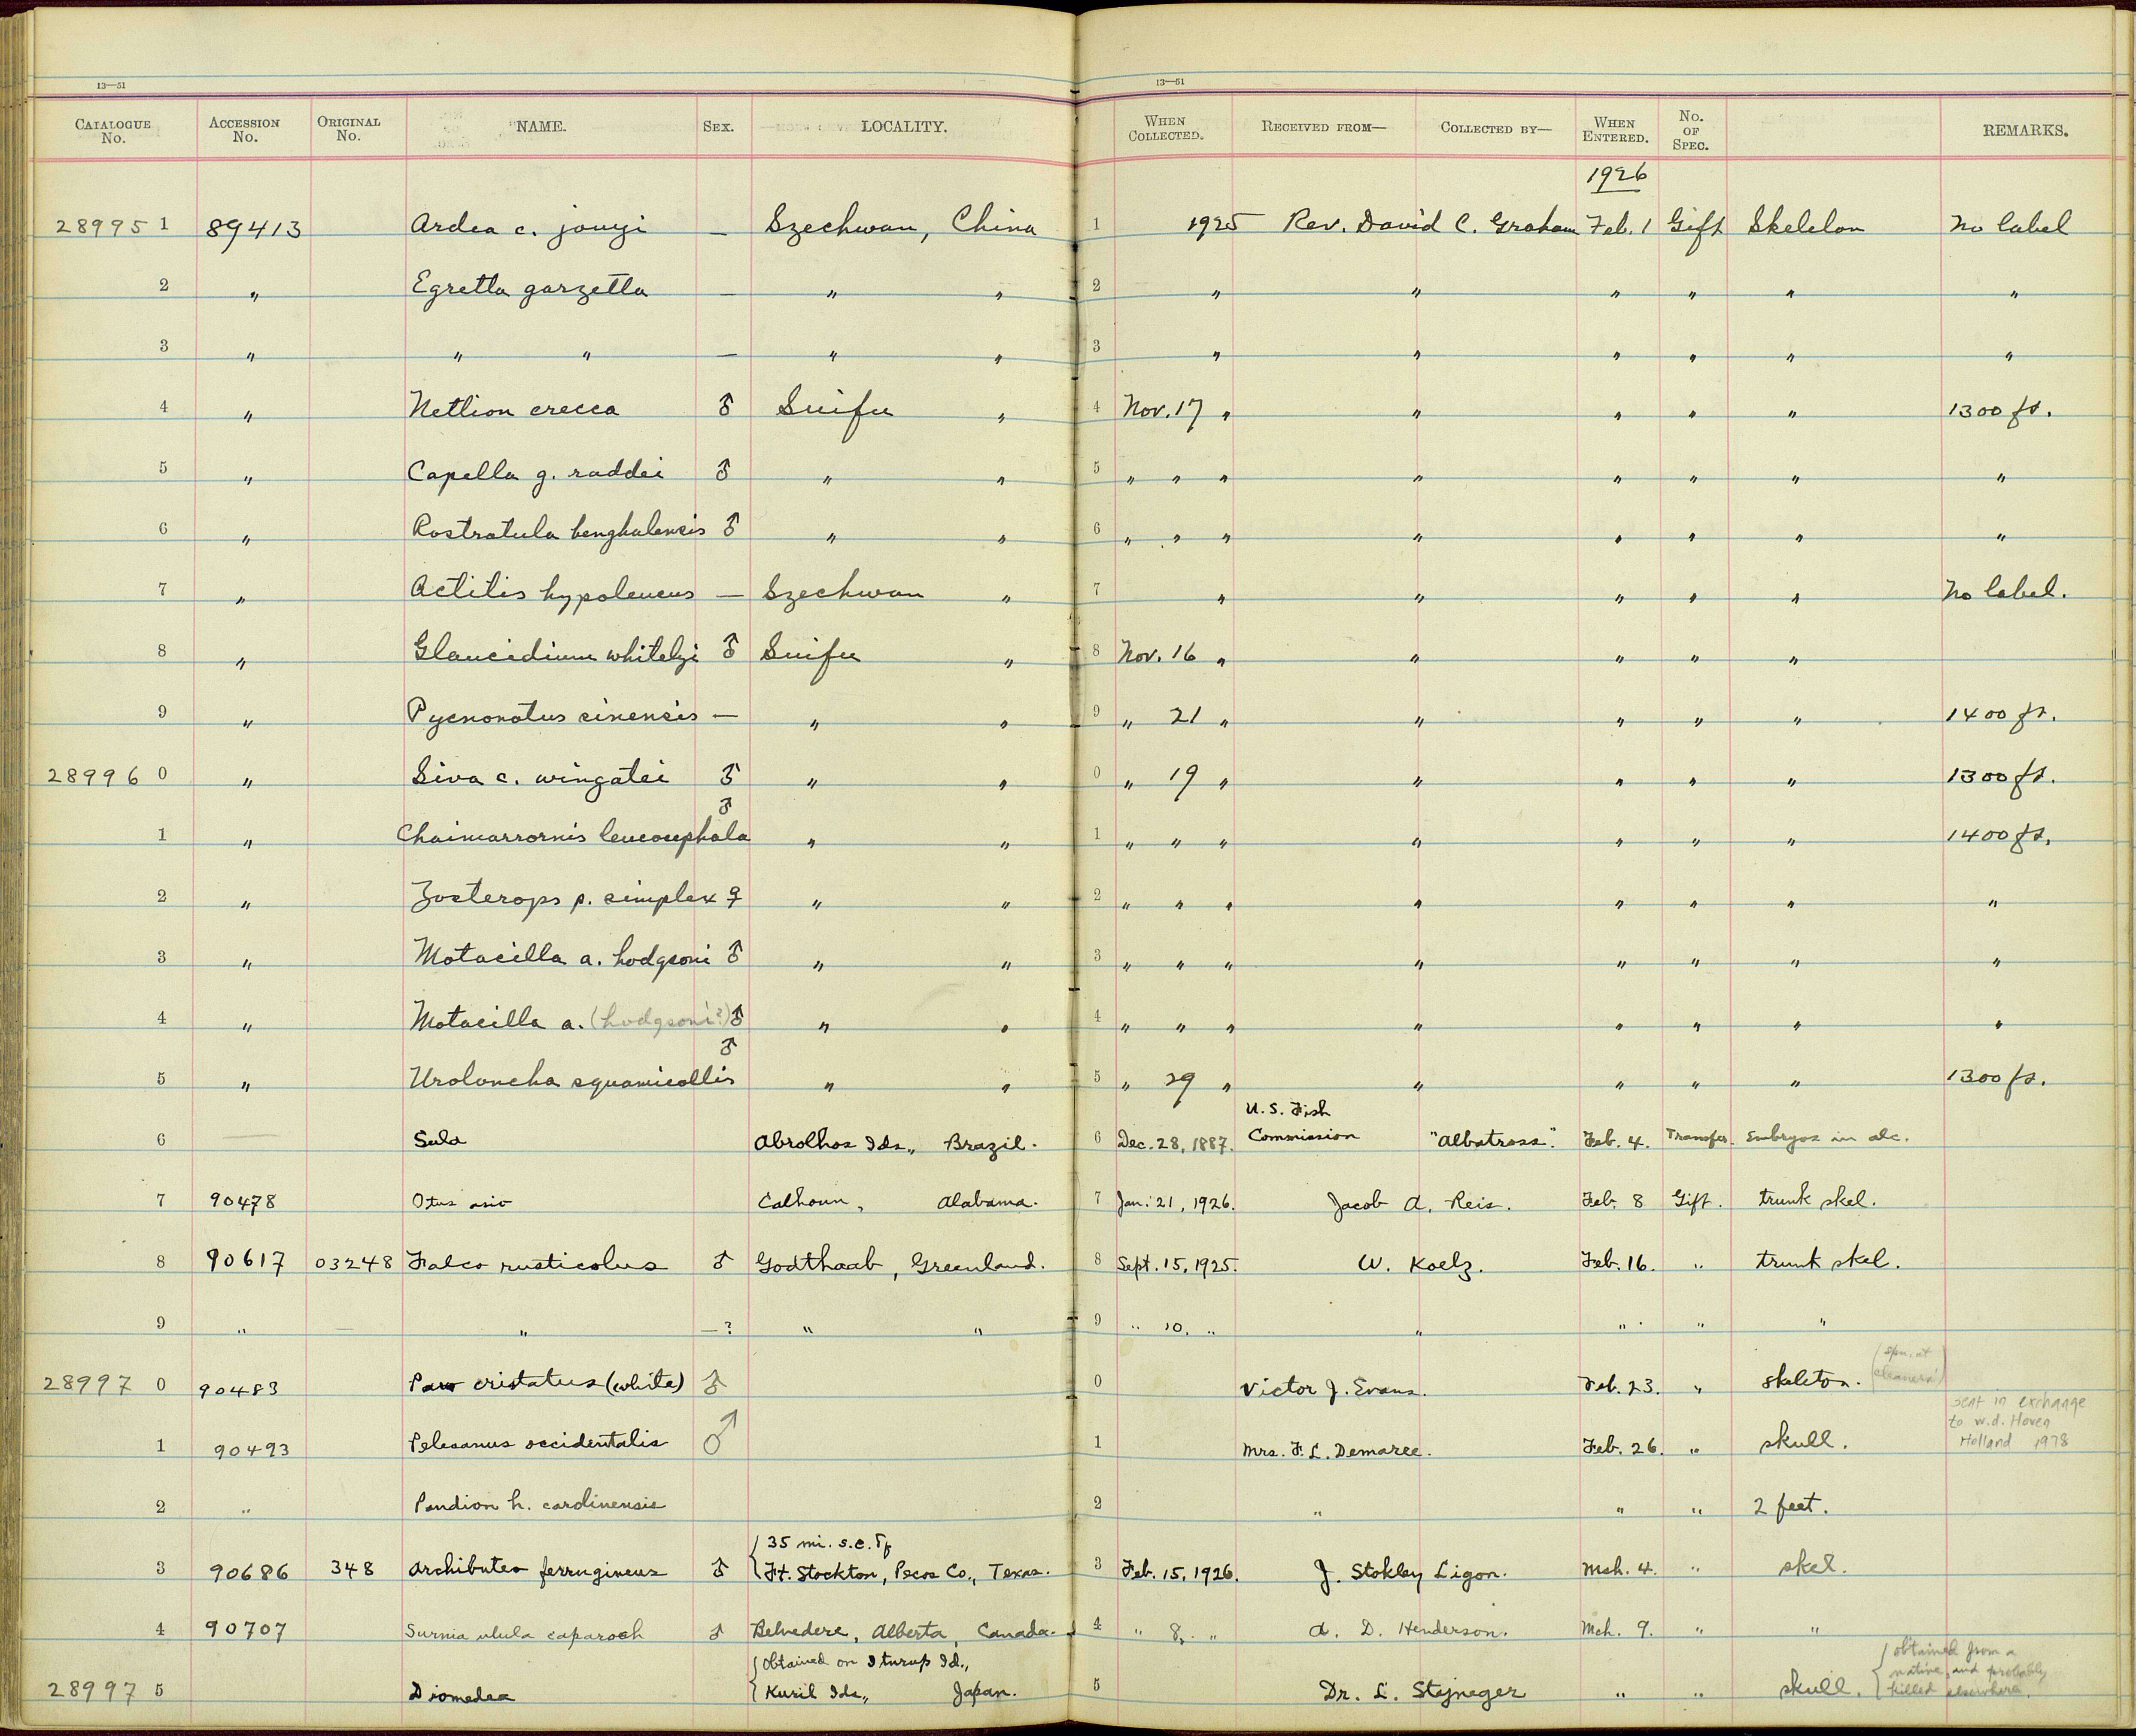 13—51 13—51
CATALOGUE No. ACCESSION No. ORIGINAL No. NAME. SEX. LOCALITY. WHEN COLLECTED. RECEIVED FROM— COLLECTED BY— WHEN ENTERED. No. OF SPEC. REMARKS.
1926
28995 1 89413 Ardea c. jouyi — Szechwan, China 1 1925 Rev. David C. Graham Feb. 1 Gift Skeleton No label
2 " Egretta garzetta — " " 2 " " " " " "
3 " " " — " " 3 " " " " " "
4 " Nettion crecca ♂ Suifu " 4 Nov. 17 " " " " " 1300 ft.
5 " Capella g. raddei ♂ " " 5 " " " " " " " "
6 " Rostratula benghalensis ♂ " " 6 " " " " " " " "
7 " Actitis hypoleucus — Szechwan " 7 " " " " " No label.
8 " Glaucidium whitelyi ♂ Suifu " 8 Nov. 16 " " " " "
9 " Pycnonotus sinensis — " " 9 " 21 " " " " " 1400 ft.
28996 0 " Siva c. wingatei ♂ " " 0 " 19 " " " " " 1300 ft.
1 " Chaimarrornis leucocephala ♂ " " 1 " " " " " " " 1400 ft.
2 " Zosterops p. simplex ♀ " " 2 " " " " " " " "
3 " Motacilla a. hodgsoni ♂ " " 3 " " " " " " " "
4 " Motacilla a. (hodgsoni?) ♂ " " 4 " " " " " " " "
5 " Uroloncha squamicollis ♂ " " 5 " 29 " " " " " 1300 ft.
6 — Sula Abrolhos Ids., Brazil. 6 Dec. 28, 1887. U. S. Fish Commission "Albatross". Feb. 4. Transfer. Embryos in alc.
7 90478 Otus asio Calhoun, Alabama. 7 Jan. 21, 1926. Jacob A. Reis. Feb. 8 Gift. trunk skel.
8 90617 03248 Falco rusticolus ♂ Godthaab, Greenland. 8 Sept. 15, 1925. W. Koelz. Feb. 16. " trunk skel.
9 " — " —? " " 9 " 10. " " " " "
28997 0 90483 Pavo cristatus (white) ♂ 0 Victor J. Evans. Feb. 23. " skeleton. (spn. at cleaners')
1 90493 Pelecanus occidentalis ♂ 1 Mrs. F. L. Demaree. Feb. 26. " skull. sent in exchange
to W.d. Hoven
Holland 1978
2 " Pandion h. carolinensis 2 " " " 2 feet.
3 90686 348 Archibuteo ferrugineus ♂ { 35 mi. s.e. of
Ft. Stockton, Pecos Co., Texas. 3 Feb. 15, 1926. J. Stokley Ligon. Mch. 4. " skel.
4 90707 Surnia ulula caparoch ♂ Belvedere, Alberta, Canada. 4 " 8, " A. D. Henderson. Mch. 9. " "
28997 5 Diomedea { Obtained on Iturup Id.,
Kuril Ids., Japan. 5 Dr. L. Stejneger " " skull. { obtained from a
native, and probably
killed elsewhere.